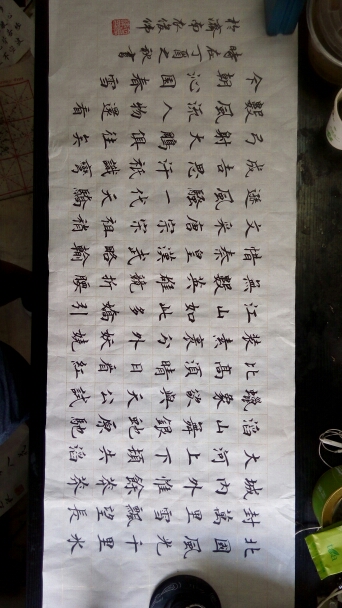 北國風光千里冰
封萬里雪飄望長
城內外惟餘莽莽
大河上下頓失滔
滔山舞銀蛇原馳
蠟象欲與天公試
比高須晴日看紅
裝素裹分外妖嬈
江山如此多嬌引
無數英雄競折腰
惜秦皇漢武略輸
文采唐宗宋祖稍
遜風騷一代天驕
成吉思汗祇識彎
弓射大鵰俱往矣
數風流人物還看
今朝 沁园春 雪
時在丁酉之秋書
於濟南